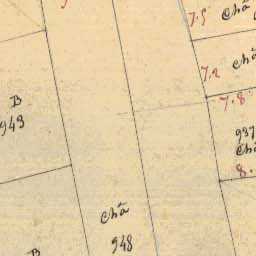 7.5
Chã
7.2
Chã
7.8
B
943
937
Chã
8.
Chã
948
B